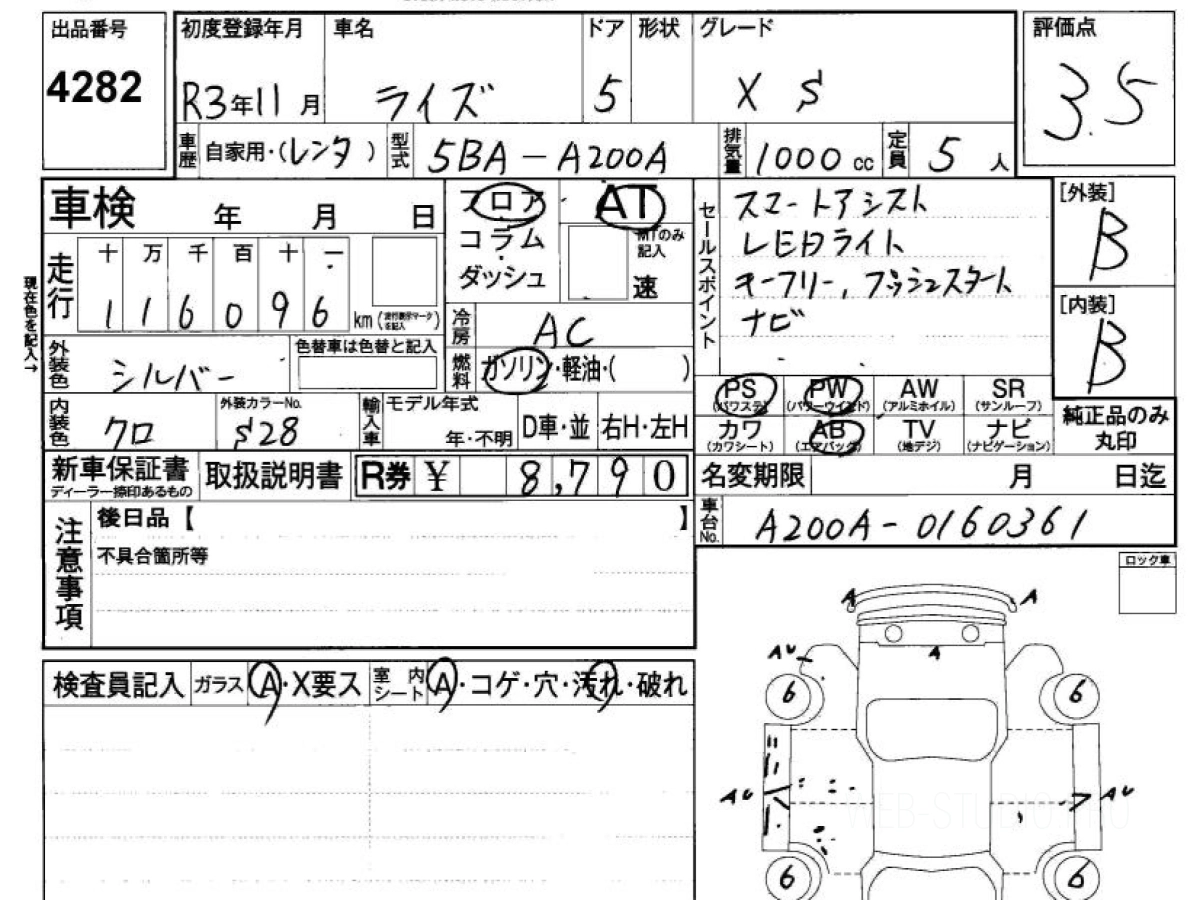 出品番号
4282
初度登録年月 車名 ドア 形状 グレード
R3年11月 ライズ 5 X S
評価点
3.5
車歴 自家用・(レンタ) 型式 5BA-A200A 排気量 1000cc 定員 5人
車検 年 月 日
フロア AT
コラム MTのみ記入
ダッシュ 速
セールスポイント
スマートアシスト
LEDライト
キーフリー, プッシュスタート
ナビ
[外装]
B
[内装]
B
現在色を記入→
走行 十 万 千 百 十 一
116096 km(走行表示マークを記入)
冷房 AC
燃料 ガソリン・軽油・( )
外装色 シルバー 色替車は色替と記入
内装色 クロ 外装カラーNo. S28
輸入車 モデル年式 年・不明 D車・並 右H・左H
PS PW AW SR
(パワステ) (パワーウインド) (アルミホイル) (サンルーフ)
カワ AB TV ナビ
(カワシート) (エアバッグ) (地デジ) (ナビゲーション)
純正品のみ
丸印
新車保証書 取扱説明書 R券 ¥ 8,790
ディーラー捺印あるもの
名変期限 月 日迄
車台No. A200A-0160361
注意事項
後日品【 】
不具合箇所等
ロック車
検査員記入 ガラス A・X要ス 室内シート A・コゲ・穴・汚れ・破れ
A A
A
AU
6 6
AU AU
WEB-STUDIO.PRO
6 6